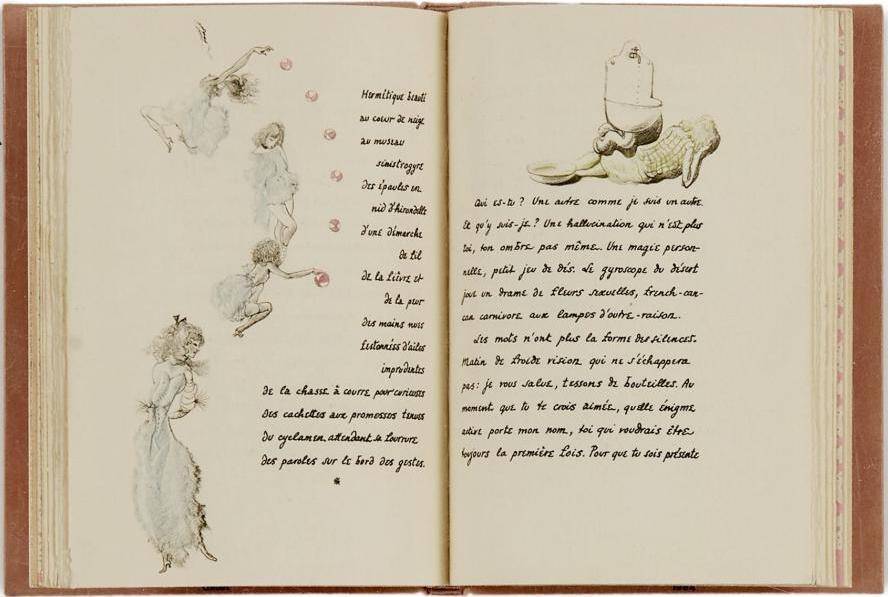 Hermétique beauté
au cœur de neige
au museau
sinistrogyre
des épaules en
nid d'hirondelle
d'une démarche
de fil
de la fièvre et
de la peur
des mains nues
festonnées d'ailes
imprudentes
de la chasse à courre pour curieuses
des cachettes aux promesses tenues
du cyclamen attendant la
des paroles sur le bord des gestes.
*
Qui es-tu ? Une autre comme je suis un autre.
Et qu'y suis-je ? Une hallucination qui n'est plus
toi, ton ombre pas même. Une magie person-
nelle, petit jeu de dés. Le gyroscope du désert
joue un drame de fleurs sexuelles, french-can-
can carnivore aux lampes d'outre-raison.
Les mots n'ont plus la forme des silences.
Matin de froide vision qui ne s'échappera
pas : je vous salue, tessons de bouteilles. Au
moment que tu te crois aimée, quelle énigme
autre porte mon nom, toi qui voudrais être
toujours la première fois. Pour que tu sois présente